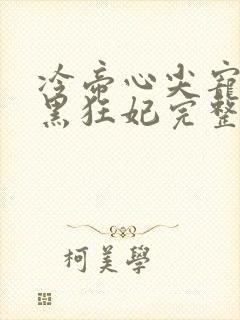 冷帝心尖宠
黑狂妃完整
柯美學